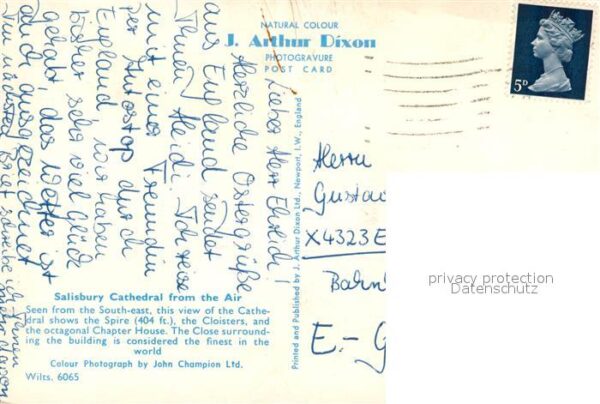 NATURAL COLOUR
J. Arthur Dixon
PHOTOGRAVURE
POST CARD
5D
Lieber Herr Ehrlich!
Herzliche Ostergrüße
aus England sendet
Ihnen Heidi. Ich reise
mit einer Freundin
per Autostop durch
England. Wir haben
bisher sehr viel Glück
gehabt, das Wetter ist
auch ausgezeichnet
Im nächsten Brief schreibe ich Ihnen
mehr davon
Printed and Published by J. Arthur Dixon Ltd., Newport, I.W., England
Herrn
Gustav
X4323 E
Bahn
E.- G
privacy protection
Datenschutz
Salisbury Cathedral from the Air
Seen from the South-east, this view of the Cathe-
dral shows the Spire (404 ft.), the Cloisters, and
the octagonal Chapter House. The Close surround-
ing the building is considered the finest in the
world
Colour Photograph by John Champion Ltd.
Wilts. 6065